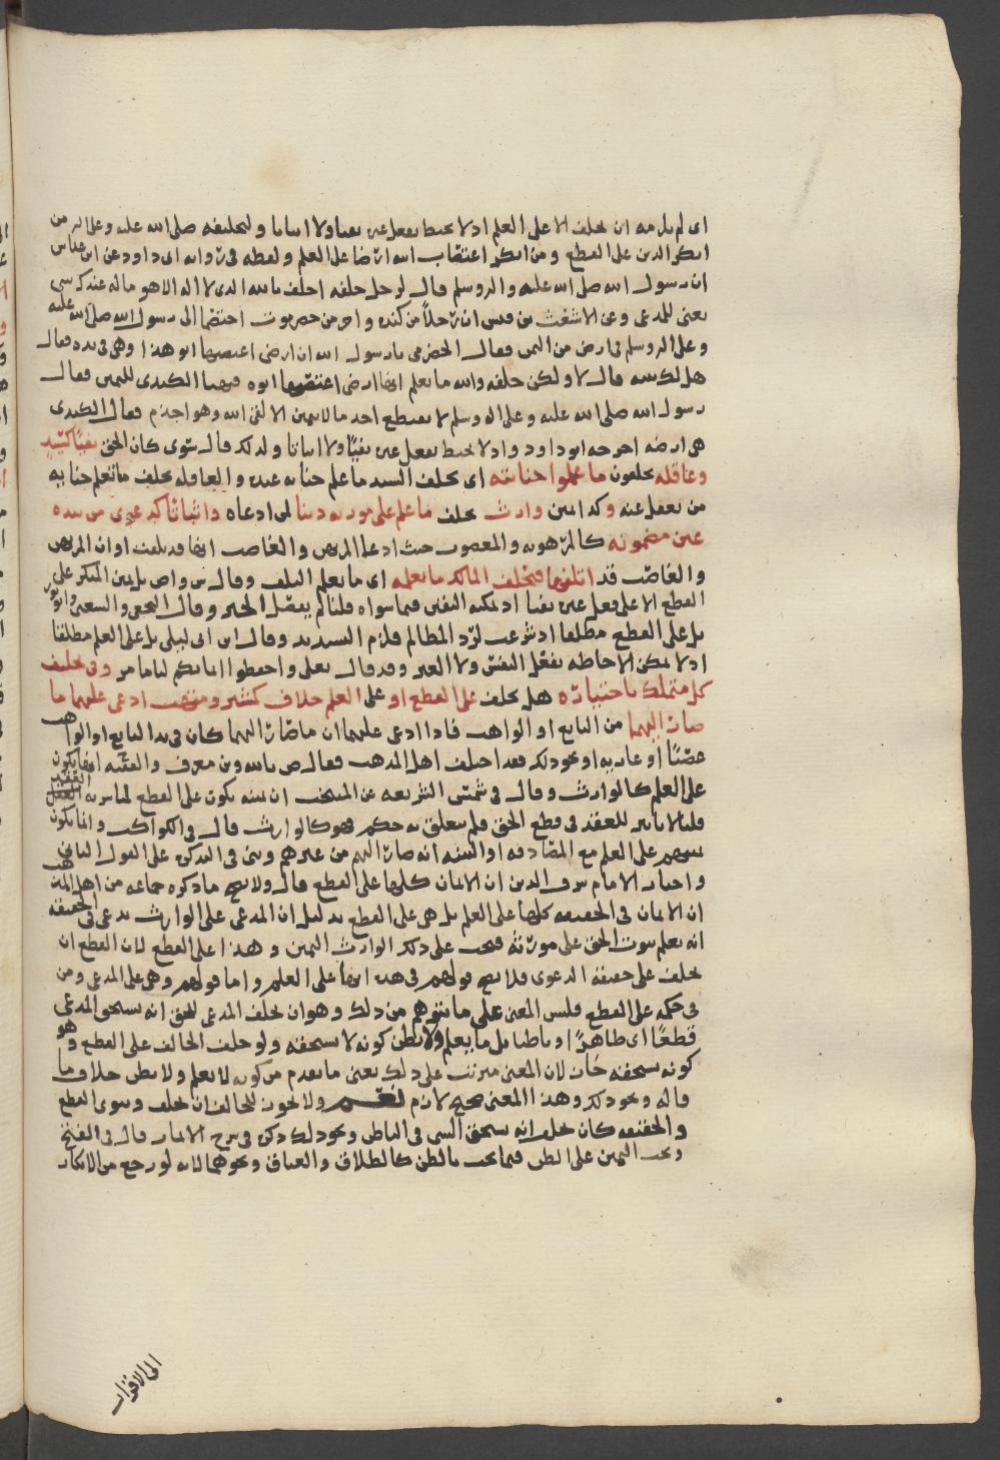 اى لم يلزمه ان يحلف الا على العلم اذ لا يحيط بفعل غيره نفيا ولا اثباتا ولتحليفه صلى الله عليه وعلى اله من
انكر الدين على القطع ومن انكر اغتصاب ابيه ارضا على العلم ولفظه فى رواية ابى داود عن ابن عباس
ان رسول الله صلى الله عليه واله وسلم قال لرجل حلفه احلف بالله الذى لا اله الا هو ماله عندك شى
يعنى للمدعى وعن الاشعث بن قيس ان رجلاً من كنده واخر من حضرموت اختصما الى رسول الله صلى الله عليه
وعلى اله وسلم فى ارض من اليمن فقال الحضرمى يا رسول الله ان ارضى اغتصبها ابو هذا وهى فى يده فقال
هل لك بينه قال لا ولكن حلفه والله ما يعلم انها ارضى اغتصبها ابوه فتهيا الكندى لليمين فقال
رسول الله صلى الله عليه وعلى اله وسلم لا يقتطع احد مالا بيمين الا لقى الله وهو اجذم فقال الكندى
هى ارضه اخرجه ابو داود واذ لا يحيط بفعل غيره نفيًا ولا اثباتا ولذلك قال سوى كان الحق نفيًا كسيد
وعاقله يحلفون ما علموا جنايته اى يحلف السيد ما علم جنايه عبده والعاقله يحلف ما تعلم جنايه
من تعقل عنه وكذا يمين وارث يحلف ما علم على مورثه دينا لمن ادعاه واثباتا كمدعى من بيده
عين مضمونه كالمرهونه والمغصوب حيث ادعا المرتهن والغاصب انها قد تلفت او ان المرتهن
والغاصب قد اتلفها فيحلف المالك ما يعلمه اى ما يعلم التلف وقال ش واص بل يمين المنكر على
القطع الا على فعل غيره نفيا اذ يمكنه اليقين فيما سواه قلنا لم يفصل الخبر وقال النخعى والشعبى وابو ثور
بل على القطع مطلقا اذ شرعت لرد المظالم فلزم التشديد وقال ابن ابى ليلى بل على العلم مطلقا
اذ لا يمكن الاحاطه بفعل النفس ولا الغير وقد قال تعالى واحفظوا ايمانكم لنا ما مر وفى تحليف
كل متملك باختياره هل يحلف على القطع او على العلم خلاف كمشتر ومتهب ادعى عليهما ما
صار اليهما من البايع او الواهب فاذا ادعى عليهما ان ما صار اليهما كان فى يد البايع او الواهب
غصبًا او عاريه او نحو ذلك فقد اختلف اهل المذهب فقال ص بالله وبن معرف والفقيه انها يكون
على العلم كالوارث وقال فى شمس الشريعه عن المنتخب ان يمينه يكون على القطع لمباشرته العقد
قلنا لا تاثير للعقد فى قطع الحق فلم يتعلق به حكم فهو كالوارث قال فى الكواكب وانما يكون
يمينهم على العلم مع المصادقه او البينه انه صار اليهم من غيرهم وبنى فى التذكره على القول الثانى
واختار الامام شرف الدين ان الايمان كلها على القطع قال ولا يصح ما ذكره جماعه من اهل المذهب
ان الايمان فى الحقيقه كلها على العلم بل هى على القطع بدليل ان المدعى على الوارث يدعى فى الحقيقه
انه يعلم ثبوت الحق على مورثه فيجب على ذلك الوارث اليمين وهذا على القطع لان القطع ان
يحلف على حقيقة الدعوى فلا يصح قولهم فى هذه انها على العلم واما قولهم وهى على المدعى ومن
فى حكمه على القطع فليس المعنى على ما يتوهم من ذلك وهو ان يحلف المدعى للحق انه يستحق المدعى
قطعًا اى ظاهرًا وباطنا بل ما يعلم ولا يظن كونه لا يستحقه ولو حلف الحالف على القطع وهو
كونه يستحقه جاز لان المعنى مترتب على ذلك يعنى ما تقدم من كونه لا يعلم ولا يظن خلاف ما
قاله ونحو ذلك وهذا المعنى صحيح لازم نعم ولا يجوز للحالف ان يحلف وينوى القطع
والحقيقه كان يحلف انه يستحق الشى فى الباطن ونحو ذلك ذكره فى شرح الاثمار قال فى الفتح
وتجب اليمين على الظن فيما يجب بالظن كالطلاق والعتاق ونحوهما لانه لو رجع من الانكار
الى الاقرار